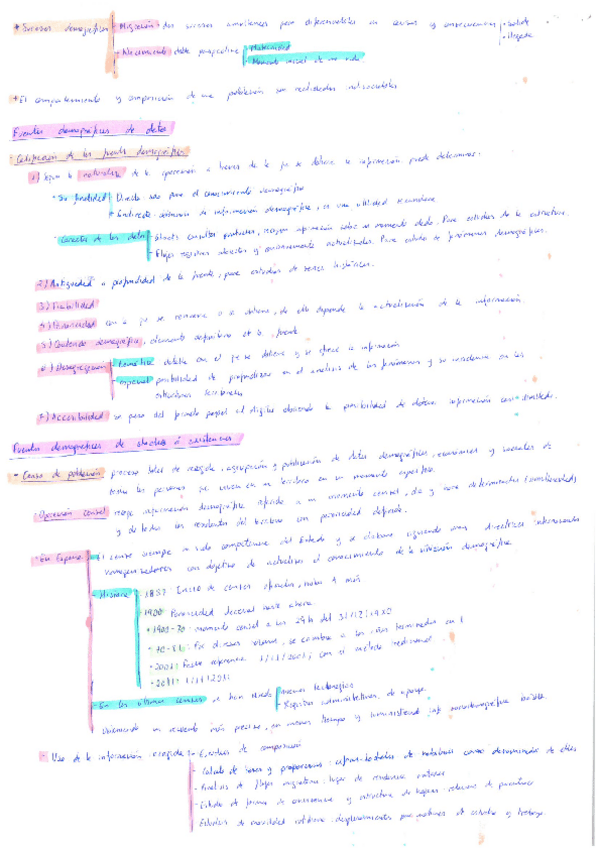 * Sucesos demográficos - Migración: dos sucesos simultáneos pero diferenciables en causas y consecuencias - Salida
- Llegada
- Nacimiento: doble perspectiva - Maternidad
- Momento inicial de una vida
* El comportamiento y composición de una población son realidades indisociables
Fuentes demográficas de datos
- Clasificación de las fuentes demográficas
1) Según la naturaleza de la operación a través de la que se obtiene la información puede determinarse:
- Su finalidad - Directa: solo para el conocimiento demográfico
- Indirecta: obtención de información demográfica, es una utilidad secundaria
- Carácter de los datos - Stocks: recogen información sobre un momento dado. Para estudios de la estructura.
- Flujos: registros abiertos y constantemente actualizados. Para estudios de fenómenos demográficos.
2) Antigüedad o profundidad de la fuente, para estudios de series históricas.
3) Fiabilidad
4) Periodicidad con la que se renueva o se obtiene, de ello depende la actualización de la información
5) Contenido demográfico, elemento definitorio de la fuente
6) Desagregación - temática: detalle con el que se obtiene y se ofrece la información
- espacial: posibilidad de profundizar en el análisis de los fenómenos y su incidencia en las
estructuras territoriales
7) Accesibilidad: se pasa del formato papel al digital abriendo la posibilidad de obtener información
Fuentes demográficas de stocks ó existencias
- Censo de población: proceso total de recogida, agrupación y publicación de datos demográficos, económicos y sociales de
todas las personas que viven en un territorio en un momento específico.
Operación censal: recoge información demográfica referida a un momento censal, día y hora determinados (simultaneidad)
y de todos los residentes del territorio con periodicidad definida.
- En España - El censo siempre ha sido competencia del Estado y se elabora siguiendo unas directrices internacionales
homogeneizadoras con objetivo de actualizar el conocimiento de la situación demográfica
- Historia - 1857: Inicio de censos oficiales,
1900: Periodicidad decenal hasta ahora
* 1900-70: momento censal a las 24h del 31/12/19X0
* 70-81: Por diversas razones, se cambia a los años terminados en 1
* 2001: Fecha referencia 1/11/2001; con el método tradicional
* 2011: 1/11/2011
- En los últimos censos se han usado - nuevas tecnologías
- Registros administrativos de apoyo
- Uso de la información recogida - Estudios de composición
- Cálculo de tasas y proporciones: cifras totales de habitantes como denominador de ellas
- Análisis de flujos migratorios: lugar de residencia anterior
- Estudio de formas de convivencia y estructura de hogares: relaciones de parentesco
Estudios de movilidad cotidiana: desplazamientos por motivos de estudio y trabajo.